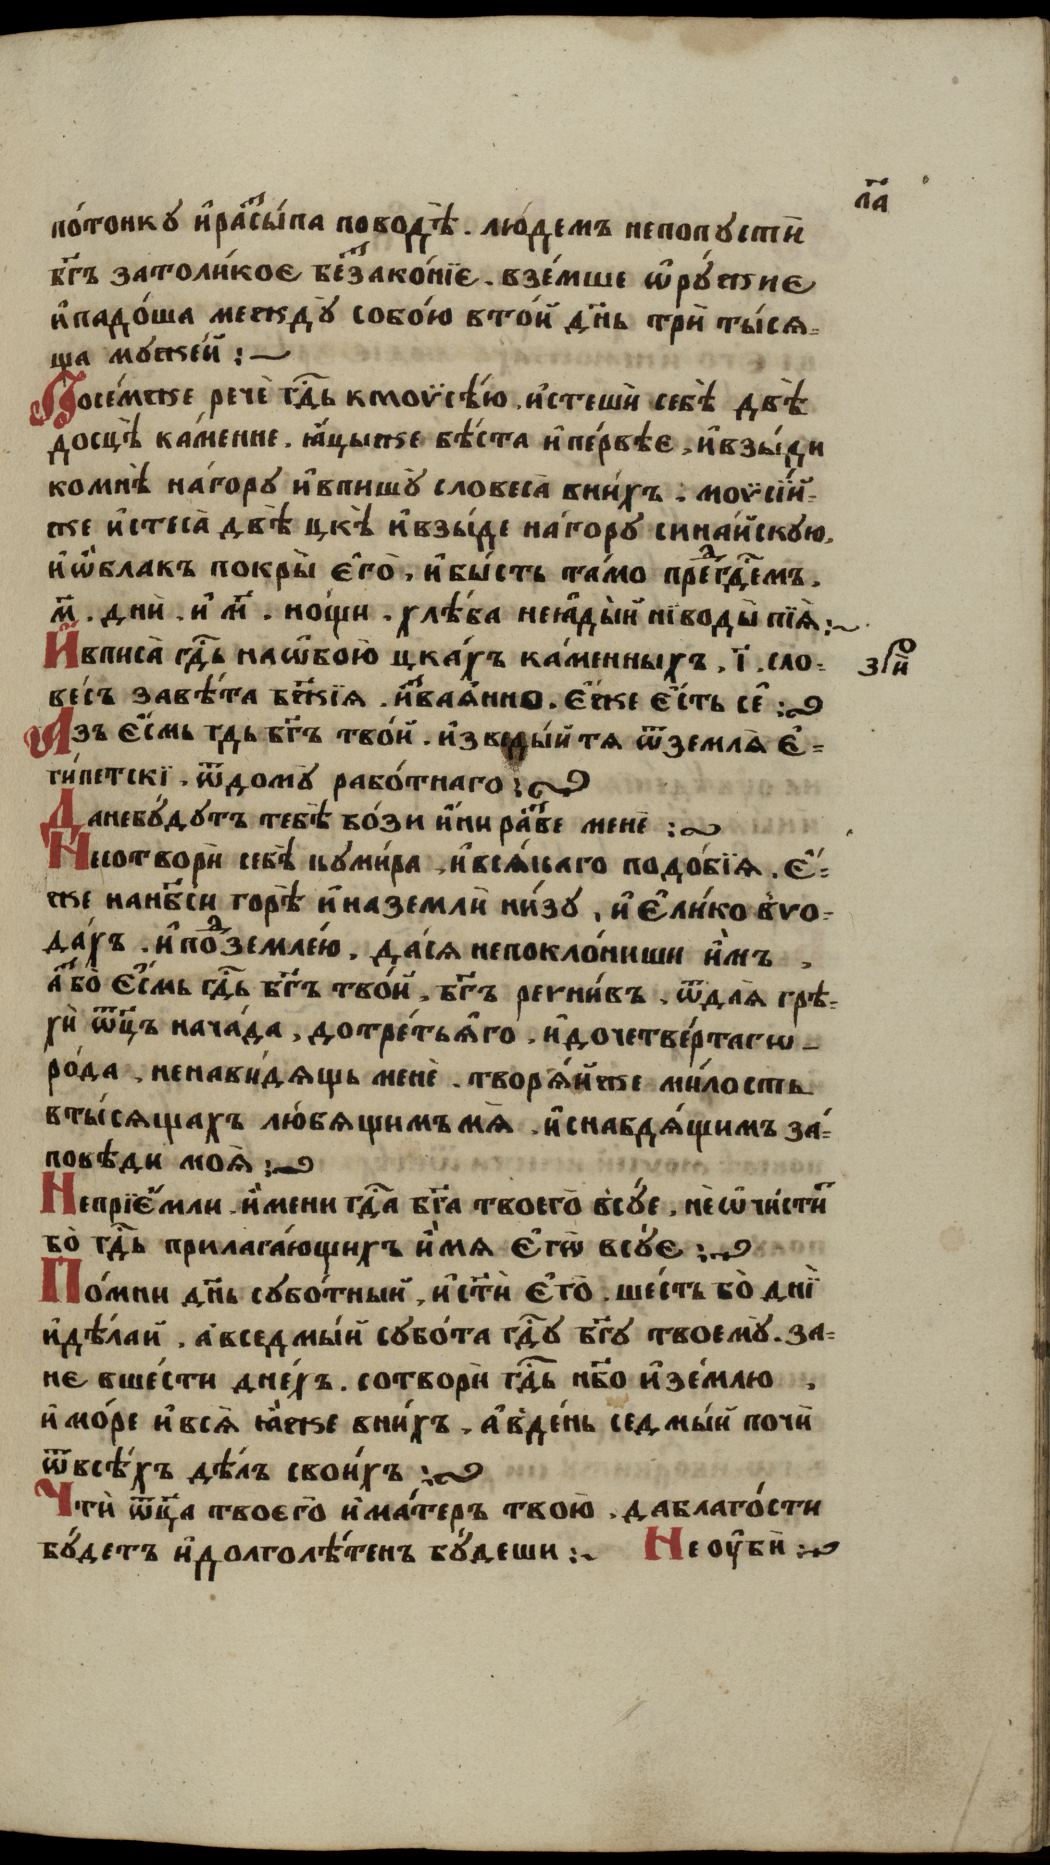 л҃а
по́тонку и҆ ра́сы́па поводѣ̀. лю́демъ непопусти̑
бг҃ъ затоли́коє бе́зⸯако́нїє. взе́мше ѡ҆рꙋ́жиє
и҆падо́ша междꙋ̀ собо́ю вто́й дн҃ь три̑ ты́сѧ-
ща муже́й :~
Посе́мже речѐ гд҇ь кмоѵ̈сѣ́ю. и҆стешѝ себѣ̀ двѣ̀
досцѣ̀ ка́менне. ꙗ҆цыже бѣ́ста и҆пе́рвѣє, и҆взы́ди
комнѣ̀ на́гору и҆впишꙋ̀ словеса̀ вни́хъ. моѵ̈сі́й-
же и҆стеса̀ двѣ̀ цкѣ̀ и҆взы́де на́гору сина́йскую,
и҆ѡ҆́блакъ покры̀ є҆го̀, и҆бы́сть та́мо пред̾гд҇емъ.
м҃. дни̑. и҆ м҃. но́щи. хлѣ́ба неꙗ҆ды́й нїводы̀ пїѧ̀ :~
И҆вписа̀ гд҇ь наѡ҆бою̀ цка́хъ ка́менныхъ, ї҃. сло-
з҃ри
ве́съ завѣ́та бж҃їѧ. и҆́зваѧ́нно. є҆́же є҆́сть сѐ :~
Азъ є҆́смь гдь бг҃ъ тво́й. и҆зведы́й тѧ ѿземлѧ̀ є҆-
ги́петскї. ѿдомꙋ̀ рабо́тнаго :~
Данебꙋ́дутъ тебѣ̀ бо́зи и҆́ни ра́зве менѐ :~
Несотворѝ себѣ̀ куми́ра, и҆всѧ́каго подо́бїѧ. є҆́-
же нанб҃си горѣ̀ и҆наземлѝ ни́зу, и҆ є҆ли́ко в̾во-
да́хъ. и҆под̾земле́ю, да́сѧ непокло́ниши и҆́мъ,
а҆́зⸯбо̀ є҆́смь гд҇ь бг҃ъ тво́й, бг҃ъ ревни́въ. ѿдлѧ̀ грѣ-
хѝ ѿц҃ъ нача́да, дотре́тьѧ҆го, и҆дочетве́ртагѡ
ро́да, ненави́дѧщь менѐ. творѧ́йже ми́лость
вты́сѧщахъ лю́бѧщимъ мѧ̀, и҆снабдѧ́щимъ за́-
повѣди моѧ̀ :~
Непріє҆́мли и҆́мени гд҇а бг҃а твоего̀ в̾сꙋ́е, неѡ҆чи́сти́т
бо̀ гд҇ь прилага́ющихъ и҆́мѧ є҆гѡ̀ всꙋ́є :~
По́мни дн҃ь субо́тный, и҆ст҃ѝ є҆го̀. ше́сть бо̀ днї̀
и҆дѣ́лай, а҆все́дмы́й субо́та гд҇у бг҃у твоемꙋ̀. за-
нє вше́сти дне́хъ. сотворѝ гд҇ь нб҃о и҆зе́млю,
и҆мо́ре и҆всѧ̀ ꙗ҆́же вни́хъ, а҆в̾де́нь седмы́й почѝ
ѿвсѣ́хъ дѣ́лъ свои́хъ :~
Чтѝ ѿц҃а твоєго̀ и҆ма́теръ твою̀, даблаго́сти
бꙋ́детъ и҆долголѣ́тенъ бꙋ́деши :~ Неоу҆бѝ :~